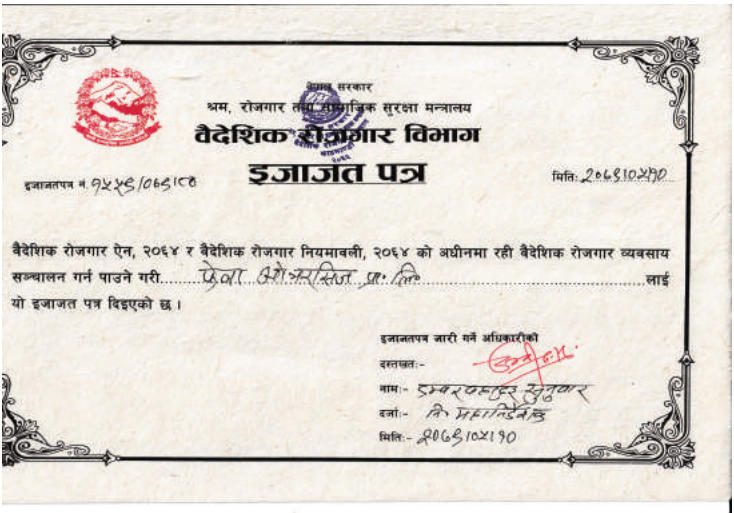 नेपाल सरकार
श्रम, रोजगार तथा सामाजिक सुरक्षा मन्त्रालय
वैदेशिक रोजगार विभाग
इजाजत पत्र
इजाजतपत्र नं.
मिति: २०६९।०५।१०
वैदेशिक रोजगार ऐन, २०६४ र वैदेशिक रोजगार नियमावली, २०६४ को अधीनमा रही वैदेशिक रोजगार व्यवसाय
सञ्चालन गर्न पाउने गरी फेवा ओभरसिज प्रा. लि. लाई
यो इजाजत पत्र दिइएको छ ।
इजाजतपत्र जारी गर्ने अधिकारीको
दस्तखत:-
नाम:- डम्बरबहादुर सुनुवार
दर्जा:- नि. महानिर्देशक
मिति:- २०६९।०५।१०